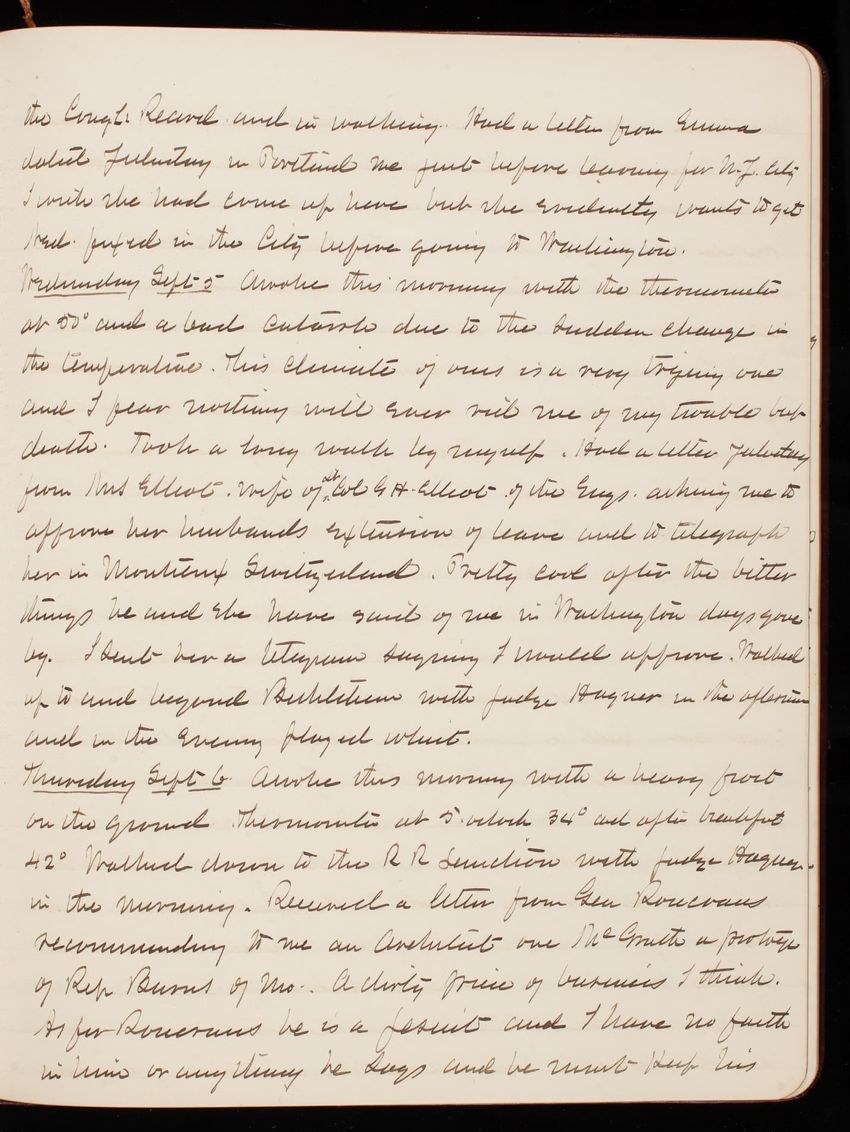 the Congl. Record and in walking. Had a letter from Emma
dated Saturday in Portland Me just before leaving for N.Y. City
I wish she had come up here but she evidently wants to get
Ned. fixed in the City before going to Washington.
Wednesday Sept 5 Awoke this morning with the thermometer
at 50° and a bad catarrh due to the sudden change in
the temperature. This climate of ours is a very trying one
and I fear nothing will ever rid me of my trouble but
death. Took a long walk by myself. Had a letter yesterday
from Mrs Elliot. wife of Col G H. Elliot of the Engs. asking me to
approve her husbands extension of leave and to telegraph
her in Montreux Switzerland. Pretty cool after the bitter
things he and she have said of me in Washington days gone
by. I sent her a telegram saying I would approve. Walked
up to and beyond Bethlehem with Judge Hagner in the afternoon
and in the evening played whist.
Thursday Sept 6 Awoke this morning with a heavy frost
on the ground. Thermometer at 5. oclock 34° and after breakfast
42° Walked down to the R R Junction with Judge Hagner
in the morning. Received a letter from Gen Rosecrans
recommending to me an Architect one McGrath a protege
of Rep. Burns of Mo.. A dirty piece of business I think.
As for Rosecrans he is a Jesuit and I have no faith
in him or anything he says and he must keep his